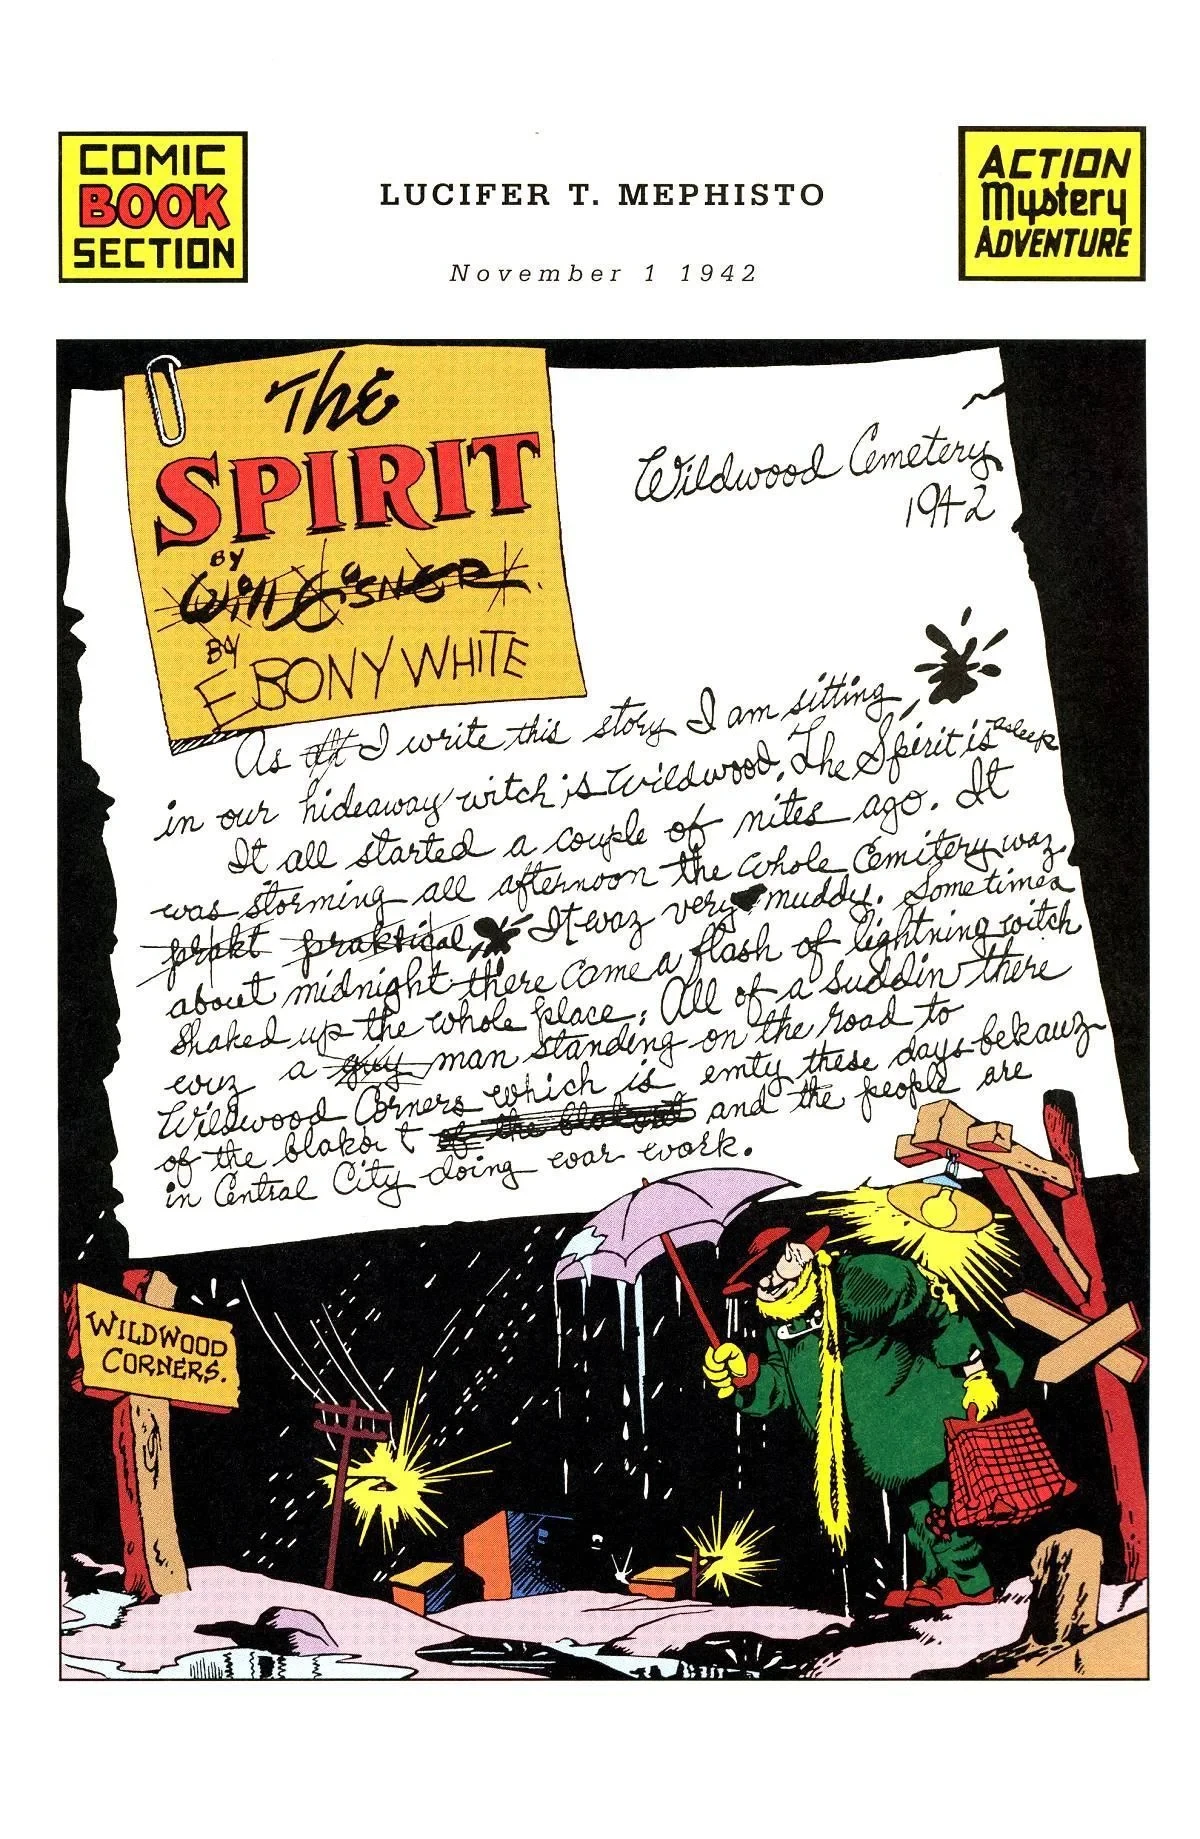 COMIC
BOOK
SECTION
LUCIFER T. MEPHISTO
November 1 1942
ACTION
Mystery
ADVENTURE
The
SPIRIT
BY
Will Eisner.
BY
EBONY WHITE
Wildwood Cemetery
1942
As I write this story I am sitting
in our hideaway witch is Wildwood. The Spirit is asleep
It all started a couple of nites ago. It
was storming all afternoon the whole Cemitery waz
prakt praktical, It waz very muddy. Sometimes
about midnight there came a flash of lightning witch
shaked up the whole place. All of a suddin there
wuz a guy man standing on the road to
Wildwood Corners which is emty these days bekauz
of the blakout of the blakout and the people are
in Central City doing war work.
WILDWOOD
CORNERS.